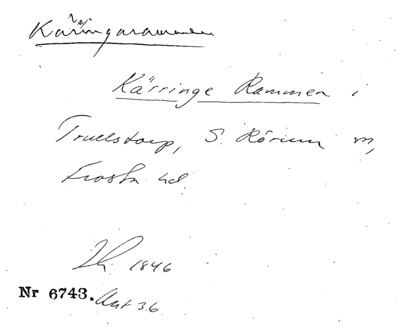 Käringaramen
Kärringe Rammen i
Truelstorp, S. Rörum sn,
Frosta hd.
1846
Nr 6743. Ant 36